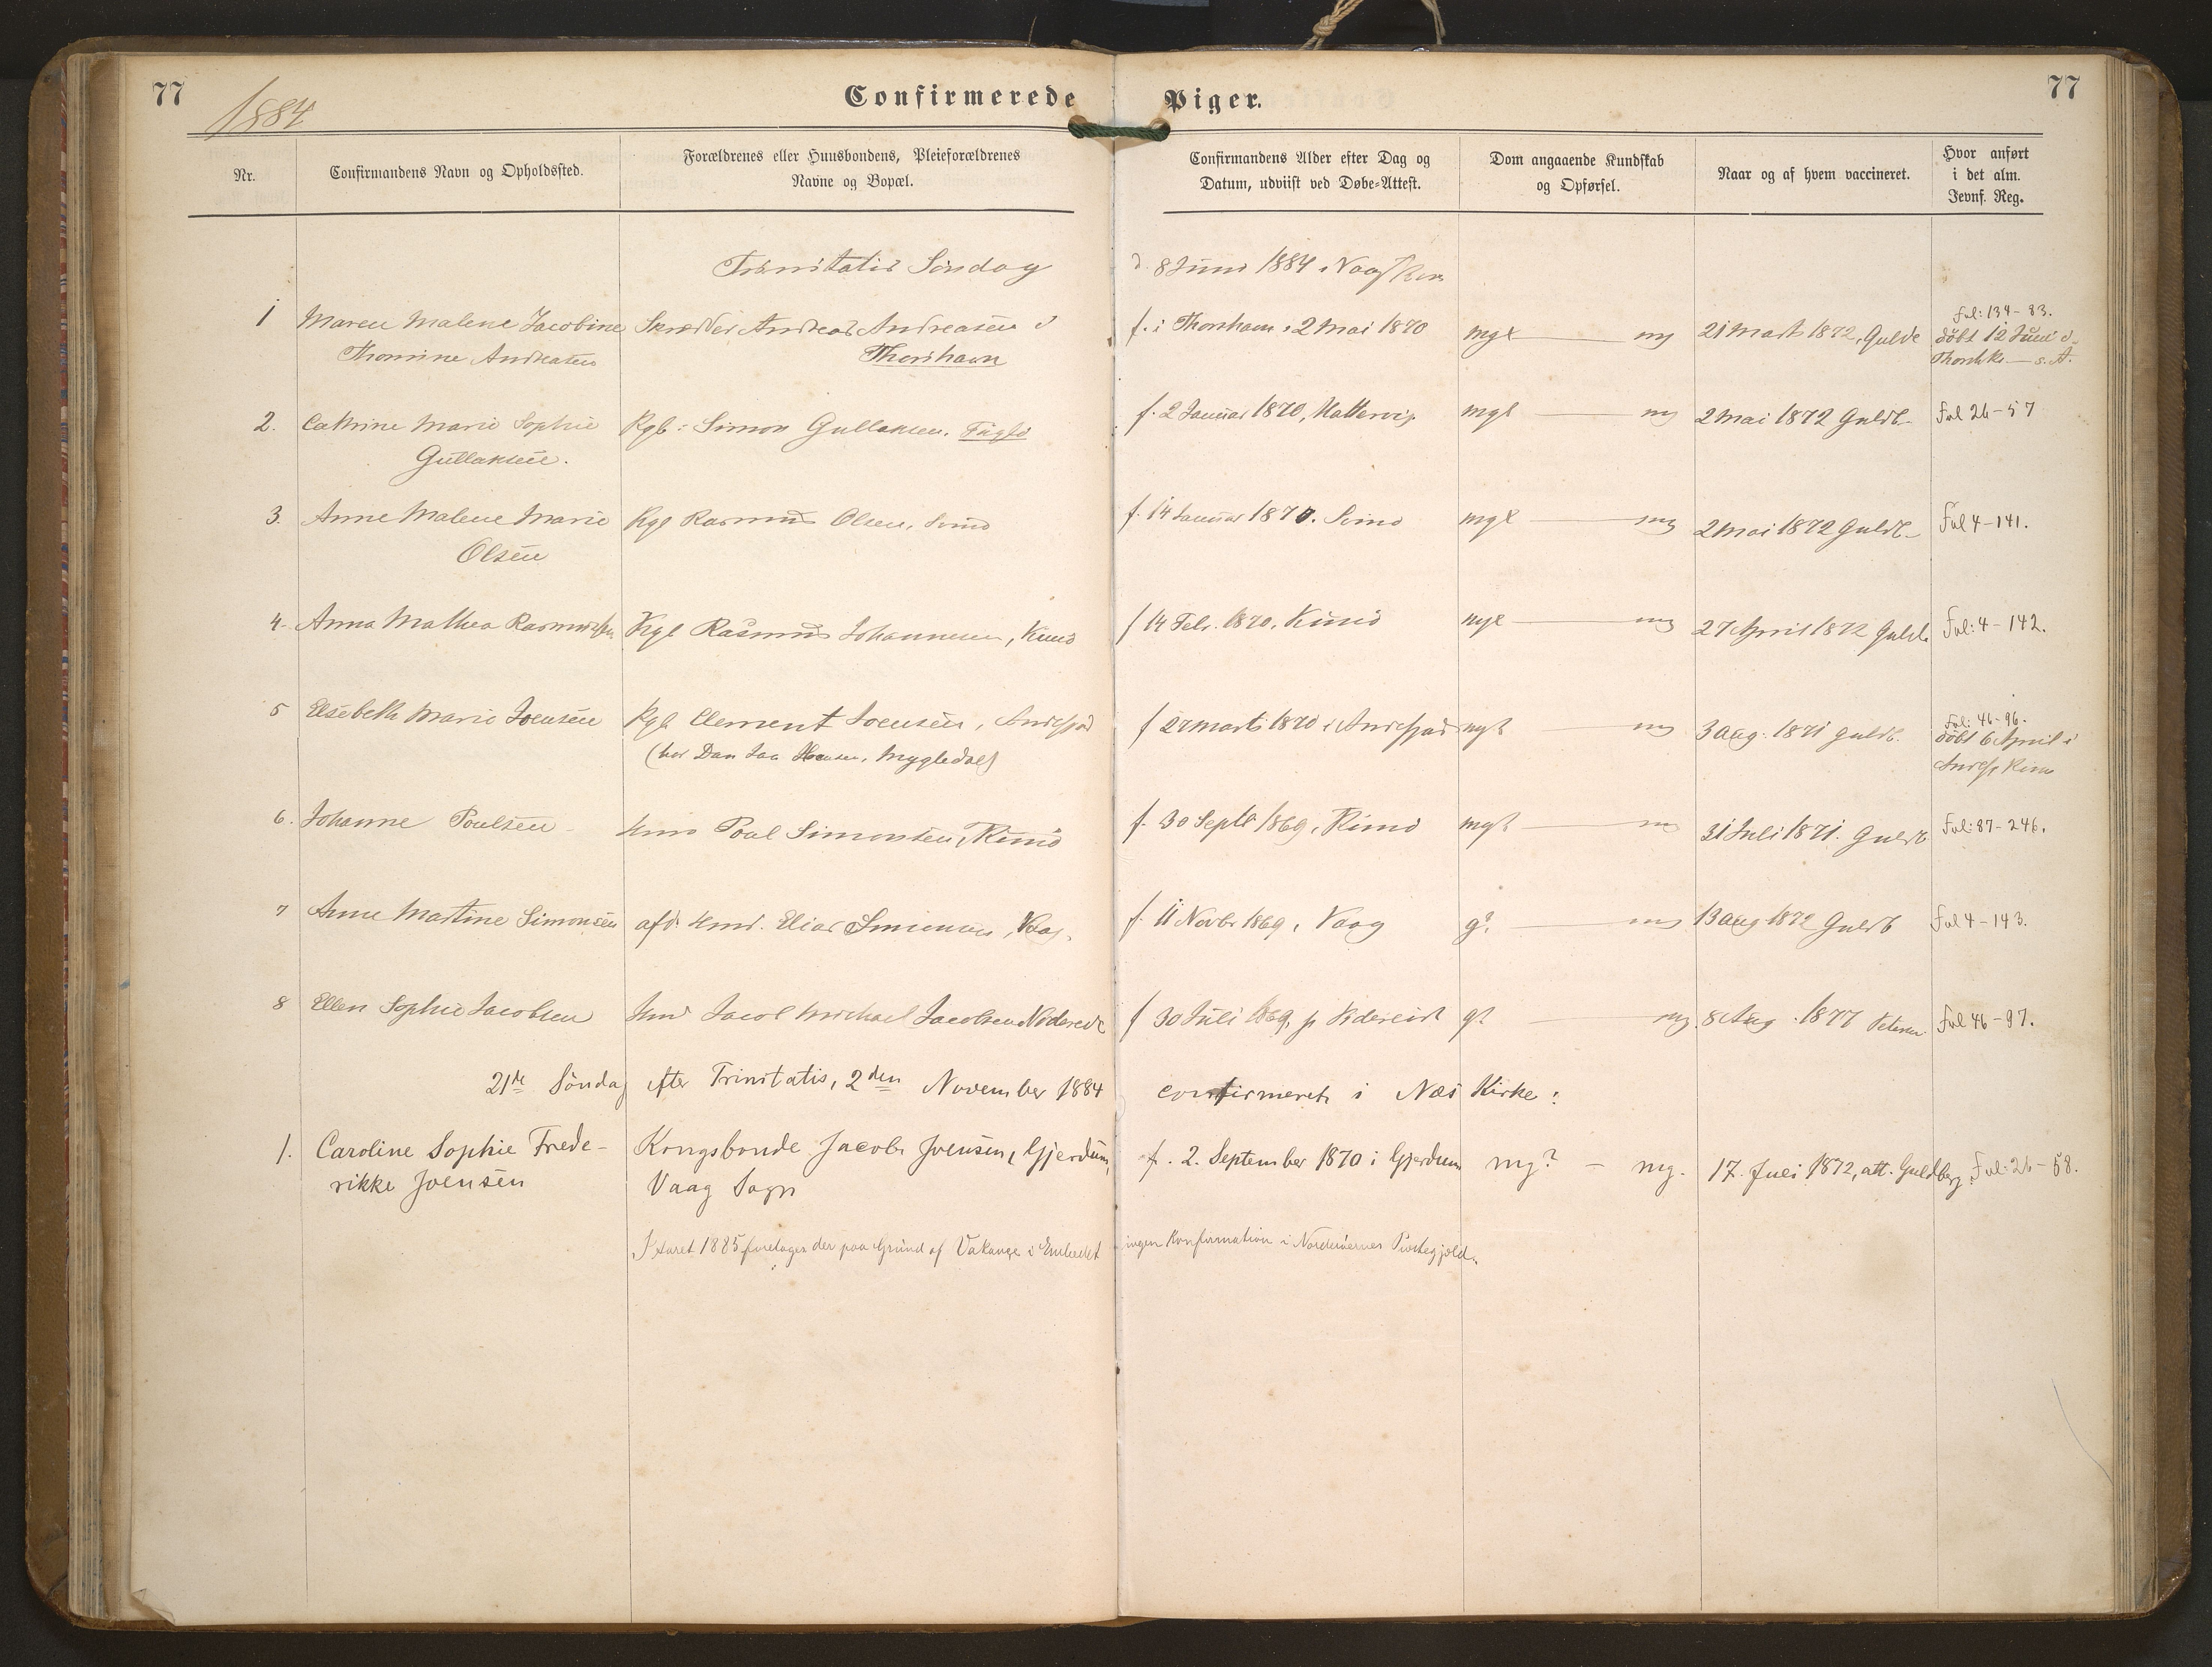 77
1884
Confirmerede Piger.
77
Nr.
Confirmandens Navn og Opholdssted.
Forældrenes eller Huusbondens, Pleieforældrenes
Navne og Bopæl.
Confirmandens Alder efter Dag og
Datum, udviist ved Døbe-Attest.
Dom angaaende Kundskab
og Opførsel.
Naar og af hvem vaccineret.
Hvor anført
i det alm.
Jevnf. Reg.
Trinitatis Søndag d. 8 Juni 1884 i Vaag
1 Maren Malene Jacobine Skrædder Andreas Andreasen i f. i Thorshavn 2 Mai 1870 mgt mg 21 Marts 1872, Guldb Fol: 134-83.
Thomine Andreasen Thorshavn døbt 12 Juni i
2. Cathrine Marie Sophie Kgb: Simon Gullaksen, Fuglø f. 2 Januar 1870, Hattervig mgt mg 2 Mai 1872 Guldb. Fol 26-57
Gullaksen.
3. Anne Malene Marie Kgb Rasmus Olsen, Svinø f. 14 Januar 1870. Svinø mgt mg 2 Mai 1872 Guldb. Fol 4-141.
Olsen
4. Anna Mathea Rasmussen Kgb Rasmus Johannesen, Kunø f 14 Febr. 1870, Kunø mgt mg 27 April 1872 Guldb. Fol: 4-142.
5 Elsebeth Marie Joensen Kgb Clement Joensen, Andefjord f 27 Marts 1870 i Andefjord mgt mg 3 Aug. 1871 Guldb. Fol: 46-96.
(hos Dan Jaa Hansen, Mygledal) døbt 6 April i
6. Johanne Poulsen Hmd Poul Simonsen, Kunø f. 30 Septb 1869, Kunø mgt mg 31 Juli 1871. Guldb. Fol: 87-246.
7 Anne Martine Simonsen afd. Hmd. Elias Simonsen, Vaag. f. 11 Novbr 1869, Vaag g? mg 13 Aug 1872 Guldb Fol 4-143.
8 Ellen Sophie Jacobsen Hmd Jacob Michael Jacobsen Viderejde f 30 Juli 1869, p Videreide g? mg. 8 Aug. 1877 Fol 46-97.
21de Søndag efter Trinitatis, 2den November 1884 confirmeret i Næs Kirke:
1. Caroline Sophie Frede- Kongsbonde Jacob Joensen, Gjerdum, f. 2. September 1870 i Gjerdum mg? - mg. 17. Juli 1872, att. Guldberg. Fol: 26-58.
rikke Joensen Vaag Sogn
I Aaret 1885 foretages der paa Grund af Vakance i Embedet ingen Konfirmation i Norderøernes Præstegjæld.